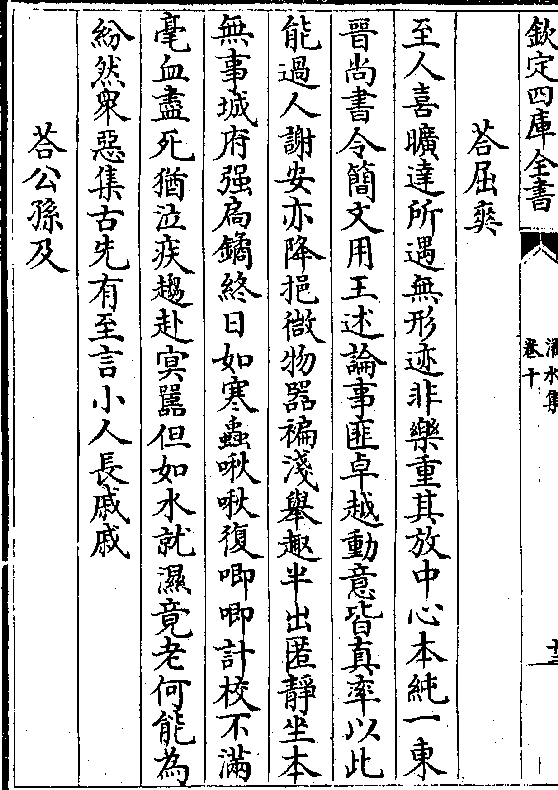 欽定四庫全書
潏水集
卷十
十三
荅屈爽
至人喜曠達所遇無形迹非樂重其放中心本純一東
晉尚書令簡文用王述論事匪卓越動意皆真率以此
能過人謝安亦降挹微物器褊淺舉趣半出匿靜坐本
無事城府强扃鐍終日如寒蟲啾啾復唧唧計校不滿
毫血盡死猶泣疾趨赴㝠嚚但如水就濕竟老何能為
紛然衆惡集古先有至言小人長戚戚
荅公孫及